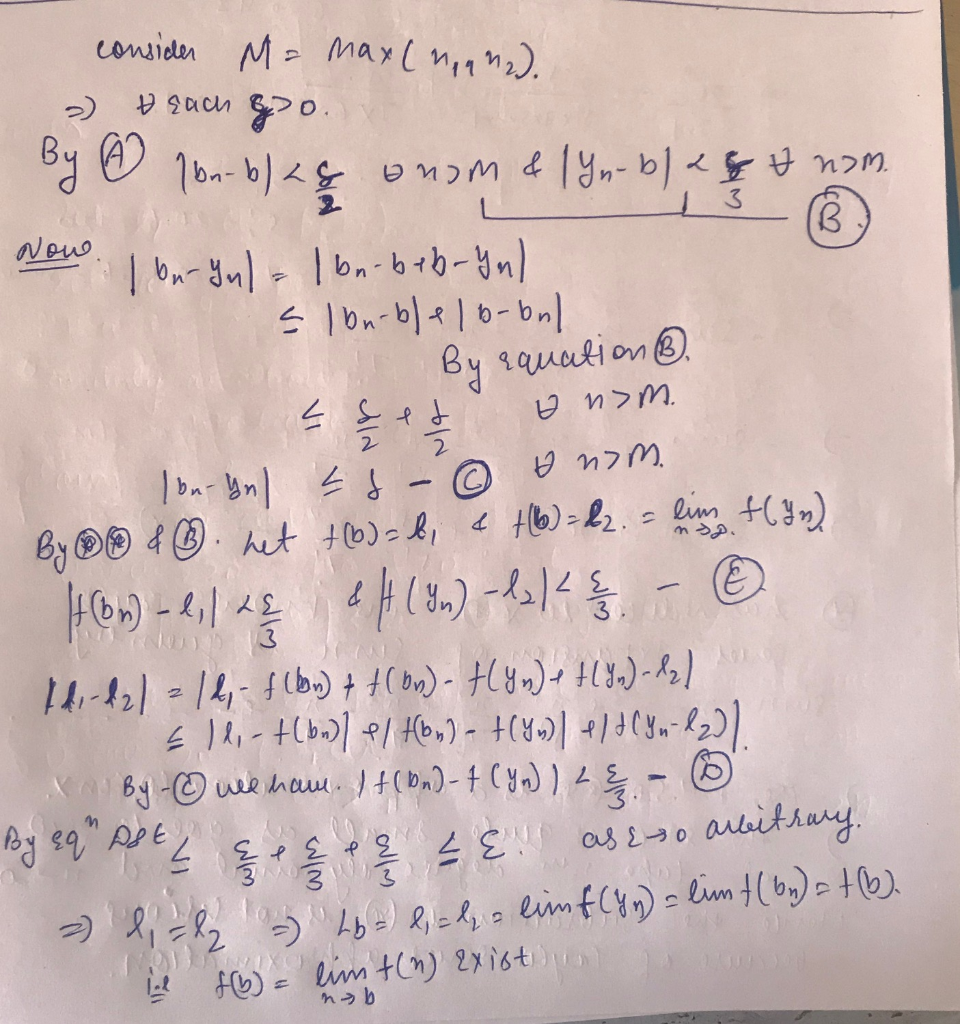 consider M = Max(n₁, n₂).
⇒) ∀ each δ>0.
By Ⓐ |bn-b| < δ/2 ∀ n>M & |yn-b| < δ/3 ∀ n>M.
Ⓑ.
Now. |bn-yn| = |bn-b+b-yn|
≤ |bn-b|+|b-bn|
By equation Ⓑ.
≤ δ/2 + δ/2 ∀ n>M.
|bn-yn| ≤ δ - Ⓒ ∀ n>M.
By & Ⓑ. Let f(b)=l₁ & f(b)=l₂. = lim n→∞. f(yn)
|f(bn)-l₁| < ε/3 & |f(yn)-l₂| < ε/3. - Ⓔ
|l₁-l₂| = |l₁-f(bn)+f(bn)-f(yn)+f(yn)-l₂|
≤ |l₁-f(bn)|+|f(bn)-f(yn)|+|f(yn-l₂)|.
By -Ⓒ we have. |f(bn)-f(yn)| < ε/3. - Ⓓ
By eqⁿ D & E ≤ ε/3 + ε/3 + ε/3 ≤ ε. as ε→0 arbitrary.
⇒) l₁=l₂ ⇒) Lb = l₁=l₂ = lim f(yn) = lim f(bn) = f(b).
i.e f(b) = lim n→b f(n) exist